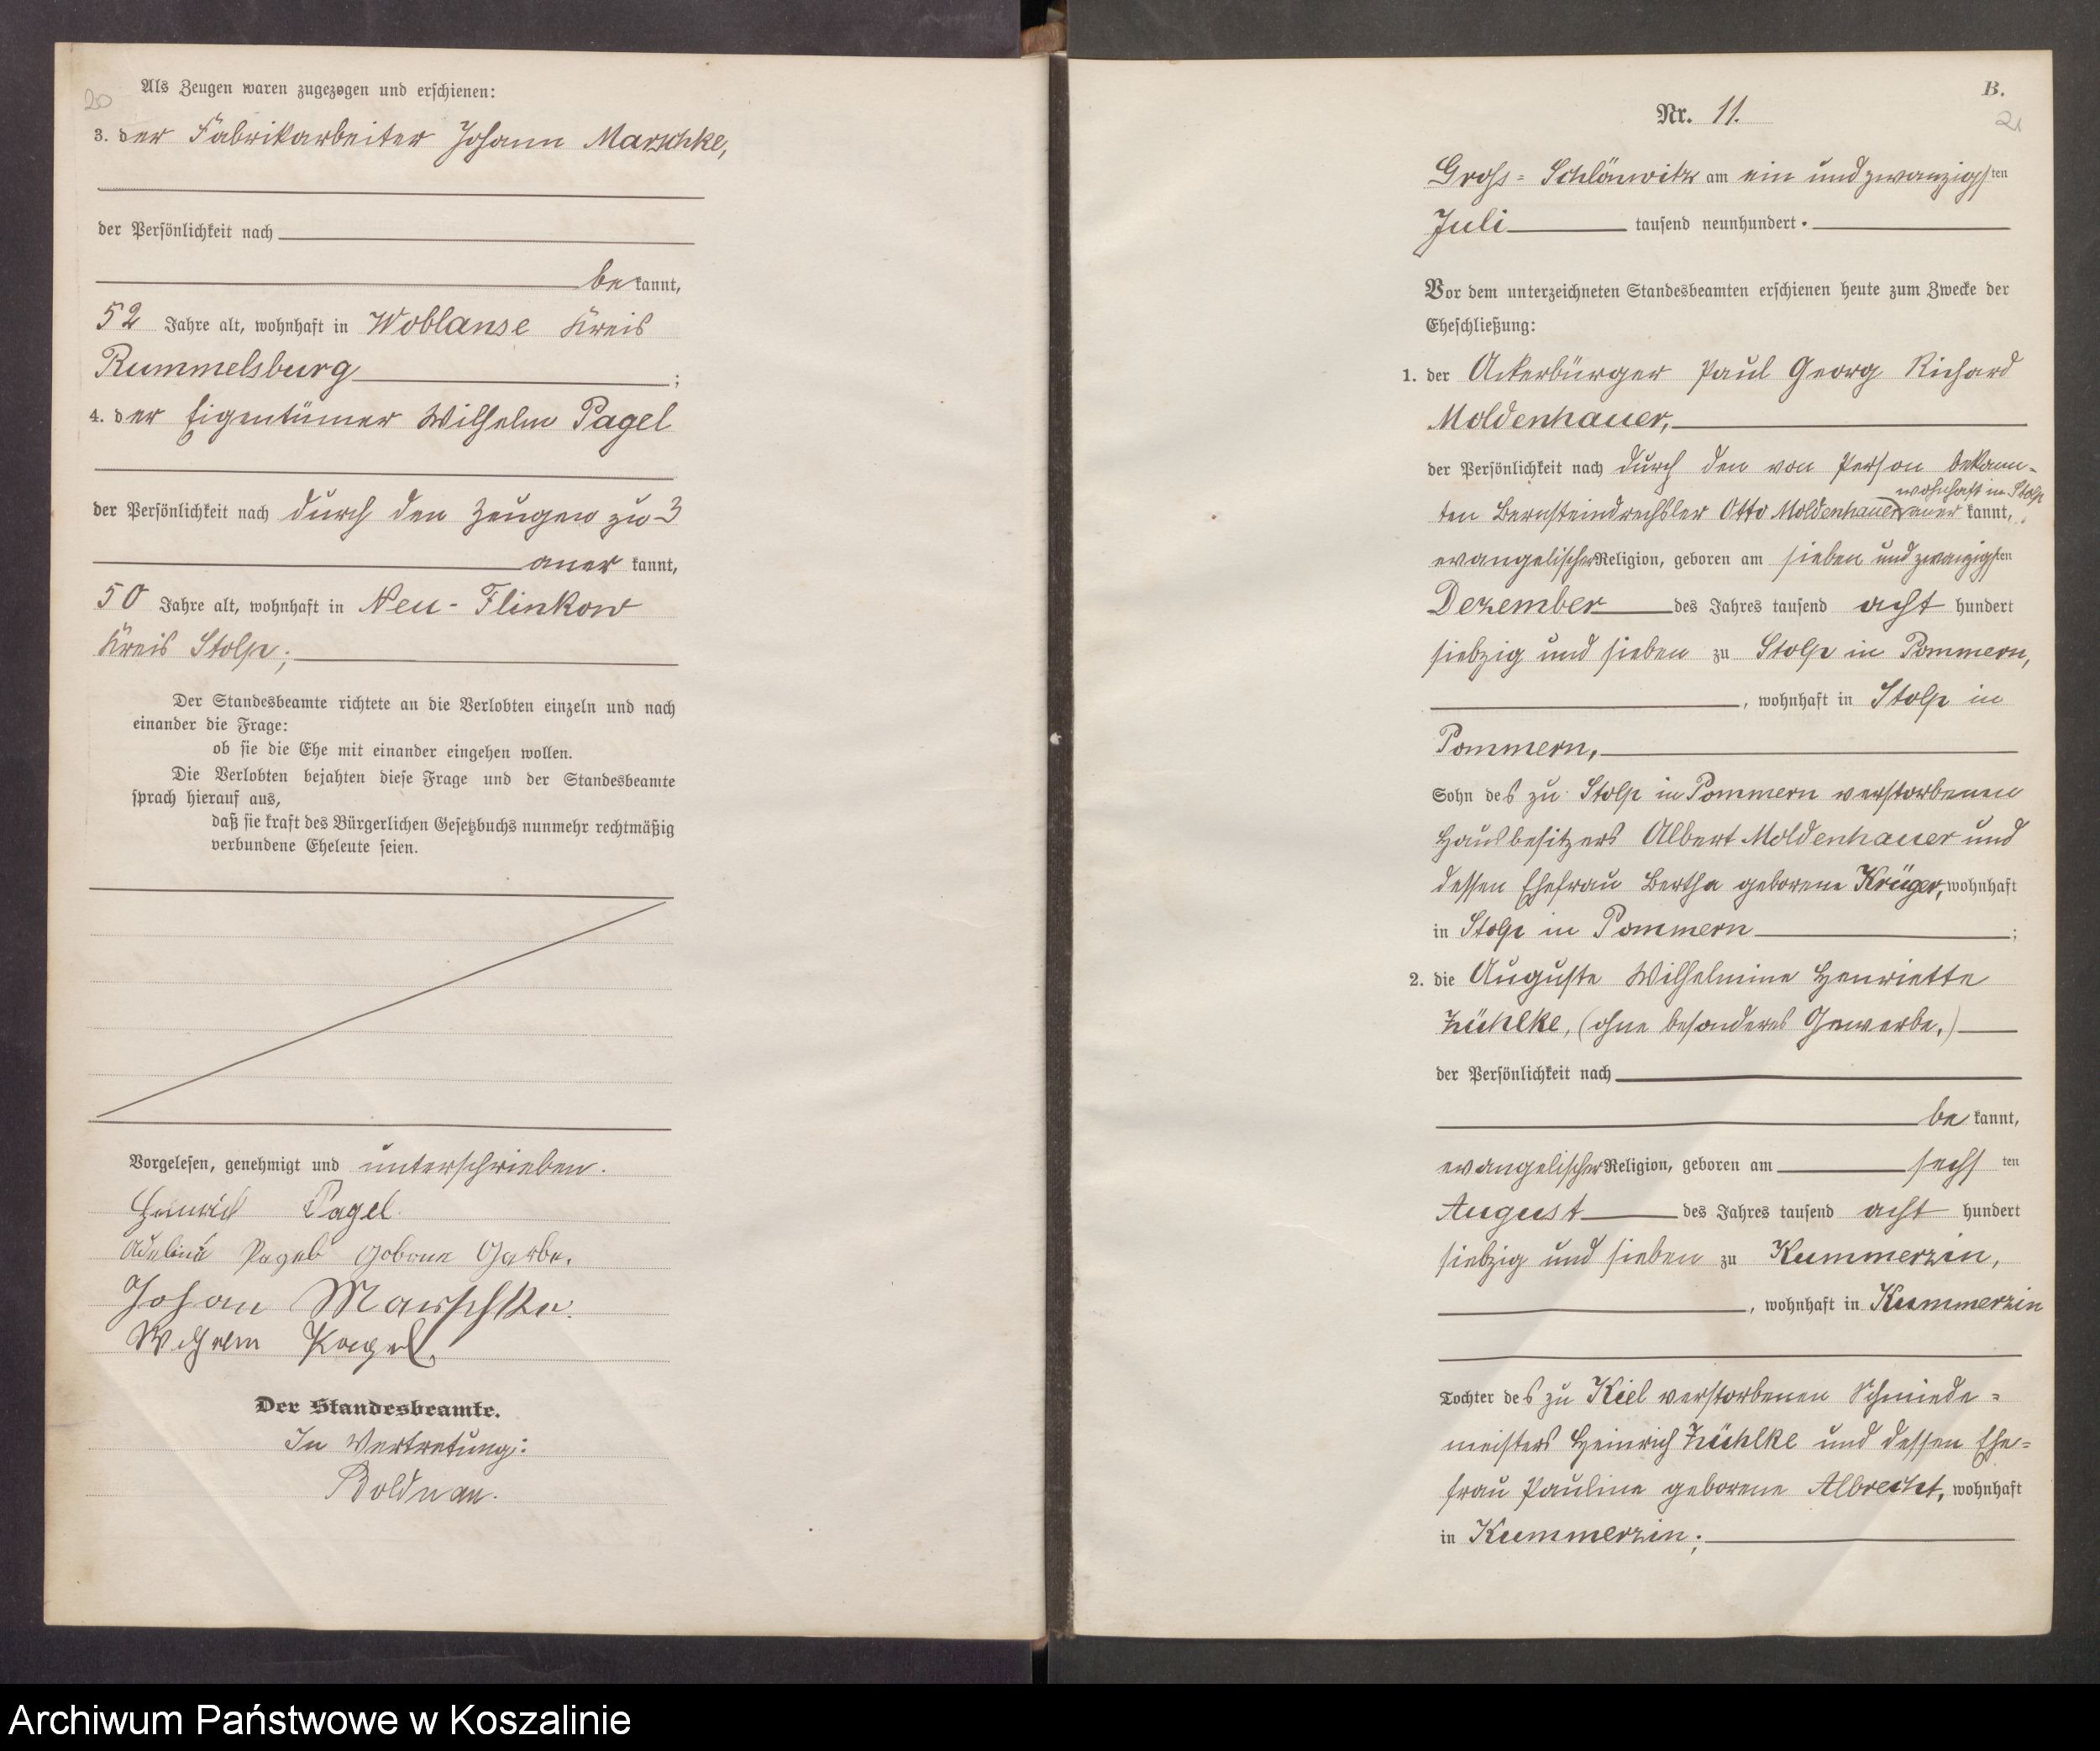 20
Als Zeugen waren zugezogen und erschienen:
3. der Fabrikarbeiter Johann Marschke,
der Persönlichkeit nach
be kannt,
52 Jahre alt, wohnhaft in Woblanse Kreis
Rummelsburg ;
4. der Eigentümer Wilhelm Pagel
der Persönlichkeit nach durch den Zeugen zu 3
aner kannt,
50 Jahre alt, wohnhaft in Neu-Flinkow
Kreis Stolp;
Der Standesbeamte richtete an die Verlobten einzeln und nach
einander die Frage:
ob sie die Ehe mit einander eingehen wollen.
Die Verlobten bejahten diese Frage und der Standesbeamte
sprach hierauf aus,
daß sie kraft des Bürgerlichen Gesetzbuchs nunmehr rechtmäßig
verbundene Eheleute seien.
Vorgelesen, genehmigt und unterschrieben.
Heinrich Pagel
Adeline Pagel Geborne Garbe.
Johan Marschke.
Wilhelm Pagel
Der Standesbeamte.
In Vertretung:
Boldnan.
B.
21
Nr. 11.
Gross=Schlönwitz am ein und zwanzigsten
Juli tausend neunhundert.
Vor dem unterzeichneten Standesbeamten erschienen heute zum Zwecke der
Eheschließung:
1. der Ackerbürger Paul Georg Richard
Moldenhauer,
der Persönlichkeit nach durch den von Person bekann-
wohnhaft in Stolp
ten Bernsteindrechsler Otto Moldenhauer aner kannt,
evangelischer Religion, geboren am sieben und zwanzigsten
Dezember des Jahres tausend acht hundert
siebzig und sieben zu Stolp in Pommern,
, wohnhaft in Stolp in
Pommern,
Sohn des zu Stolp in Pommern verstorbenen
Hausbesitzers Albert Moldenhauer und
dessen Ehefrau Bertha geborene Krüger, wohnhaft
in Stolp in Pommern ;
2. die Auguste Wilhelmine Henriette
Zühlke, (ohne besonderes Gewerbe,)
der Persönlichkeit nach
be kannt,
evangelischer Religion, geboren am sechs ten
August des Jahres tausend acht hundert
siebzig und sieben zu Kummerzin,
, wohnhaft in Kummerzin
Tochter des zu Kiel verstorbenen Schmiede=
meisters Heinrich Zühlke und dessen Ehe=
frau Pauline geborene Albrecht, wohnhaft
in Kummerzin;
Archiwum Państwowe w Koszalinie